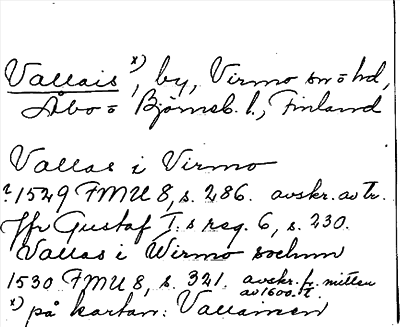 Vallais x), by, Virmo sn o hd,
Åbo o Björneb. l., Finland
Vallas i Virmo
? 1529 FMU 8, s. 286. avskr. av tr.
Jfr Gustaf I.s reg. 6, s. 230.
Vallas i Wirmo sochnn
1530 FMU 8, s. 321. avskr. fr. mitten
av 1600-t.
x) på kartan: Vallamen